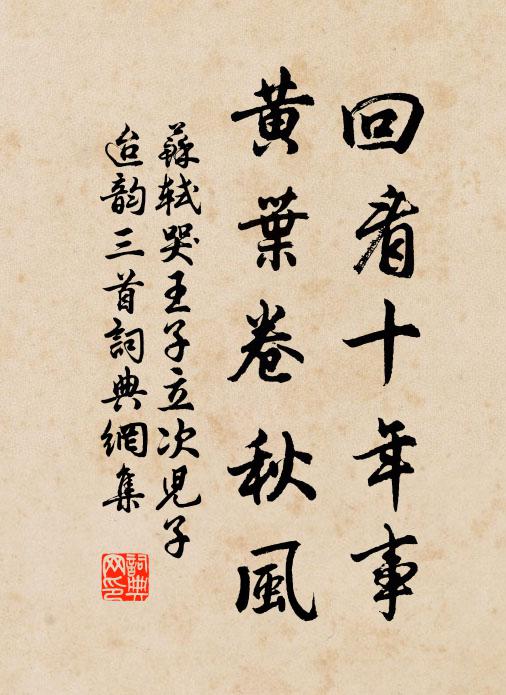 回看十年事
黃葉卷秋風
蘇軾哭王子立次兒子
迨韻三首詞典網集
詞典
网印